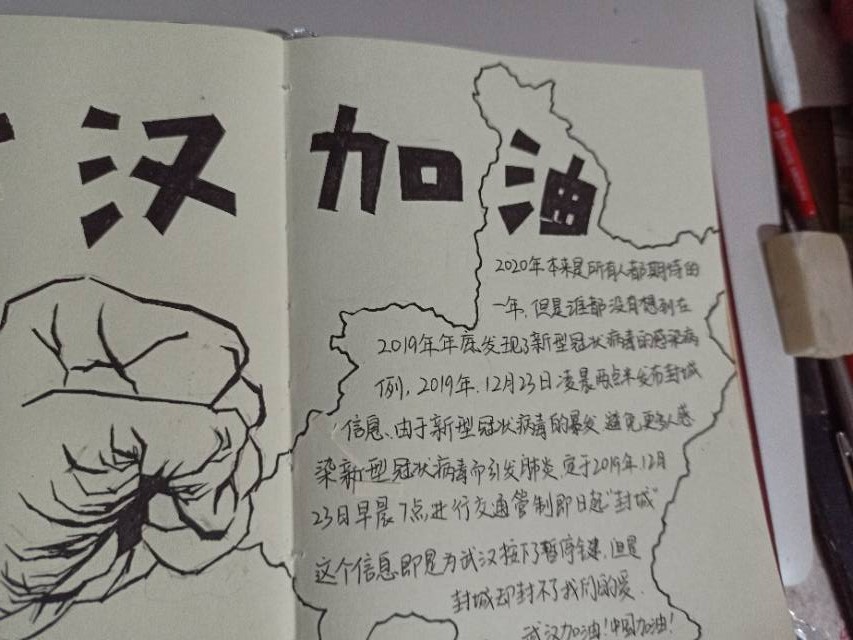 汉加油
2020年本来是所有人都期待的
一年,但是谁都没有想到在
2019年年底发现了新型冠状病毒的感染病
例,2019年.12月23日凌晨两点半发布封城
信息、由于新型冠状病毒的暴发,避免更多人感
染新型冠状病毒而引发肺炎,定于2019年.12月
23日早晨7点,进行交通管制即日起"封城"
这个信息即是为武汉按下了暂停键.但是
封城却封不了我们的爱.
武汉加油!中国加油!